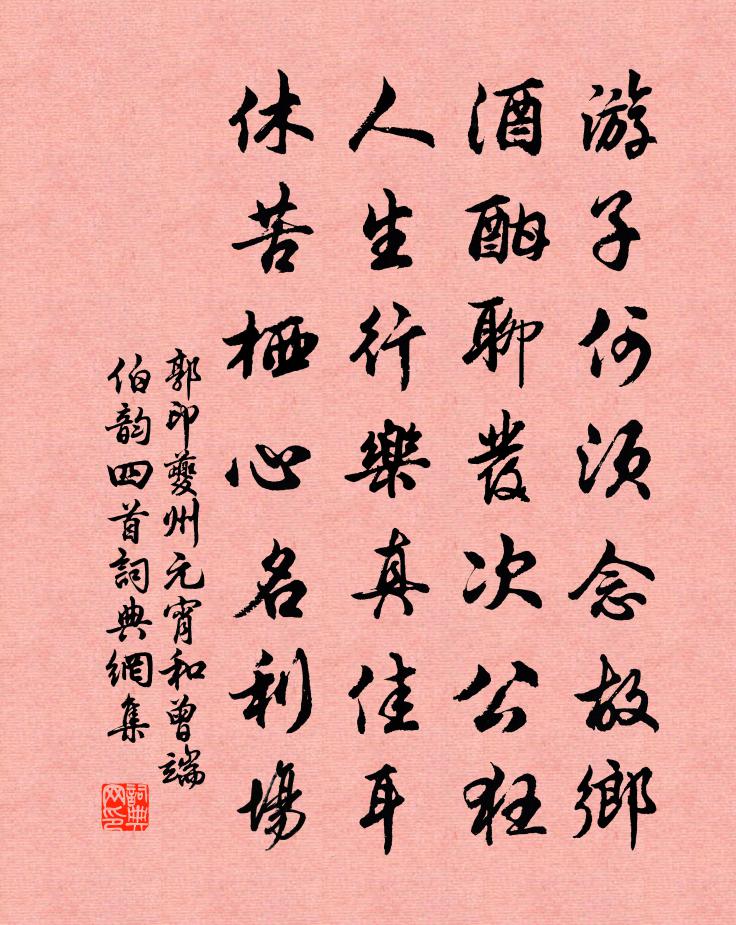 游子何須念故鄉
酒酣聊發次公狂
人生行樂真佳耳
休苦栖心名利場
郭印夔州元宵和曾端
伯韵四首詞典網集
詞典网印